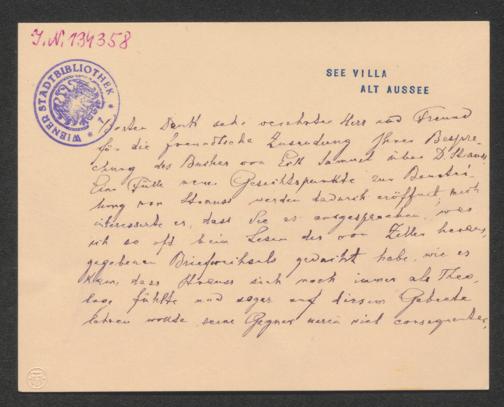 J.N. 134358
WIENER STADTBIBLIOTHEK
* 1 *
SEE VILLA
ALT AUSSEE
Besten Dank sehr verehrter Herr und Freund
für die freundliche Zusendung Ihrer Bespre-
chung des Buches von über D. Strauss
Eine Fülle neue Gesichtspunkte zur Beurthei-
lung von Strauss werden dadurch eröffnet; mich
interessirte es, dass Sie es ausgesprochen, was
ich so oft beim Lesen des von Zeller heraus-
gegebenen Briefwechsels gedacht habe, wie es
kam, dass Strauss sich noch immer als Theo-
loge fühlte und sogar auf diesem Gebiete
lehren wollte, seine Gegner waren viel consequenter,